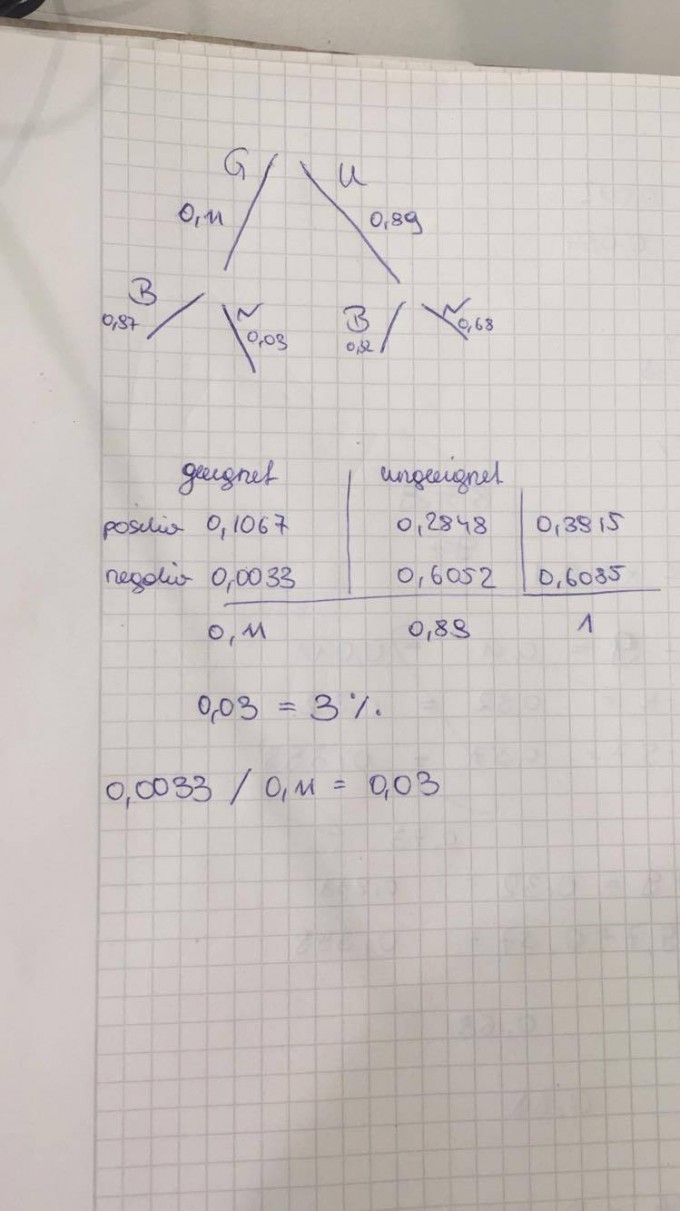 G U
0,11 0,89
B N B N
0,97 0,03 0,32 0,68
geeignet ungeeignet
positiv 0,1067 0,2848 0,3915
negativ 0,0033 0,6052 0,6085
0,11 0,89 1
0,03 = 3%.
0,0033 / 0,11 = 0,03